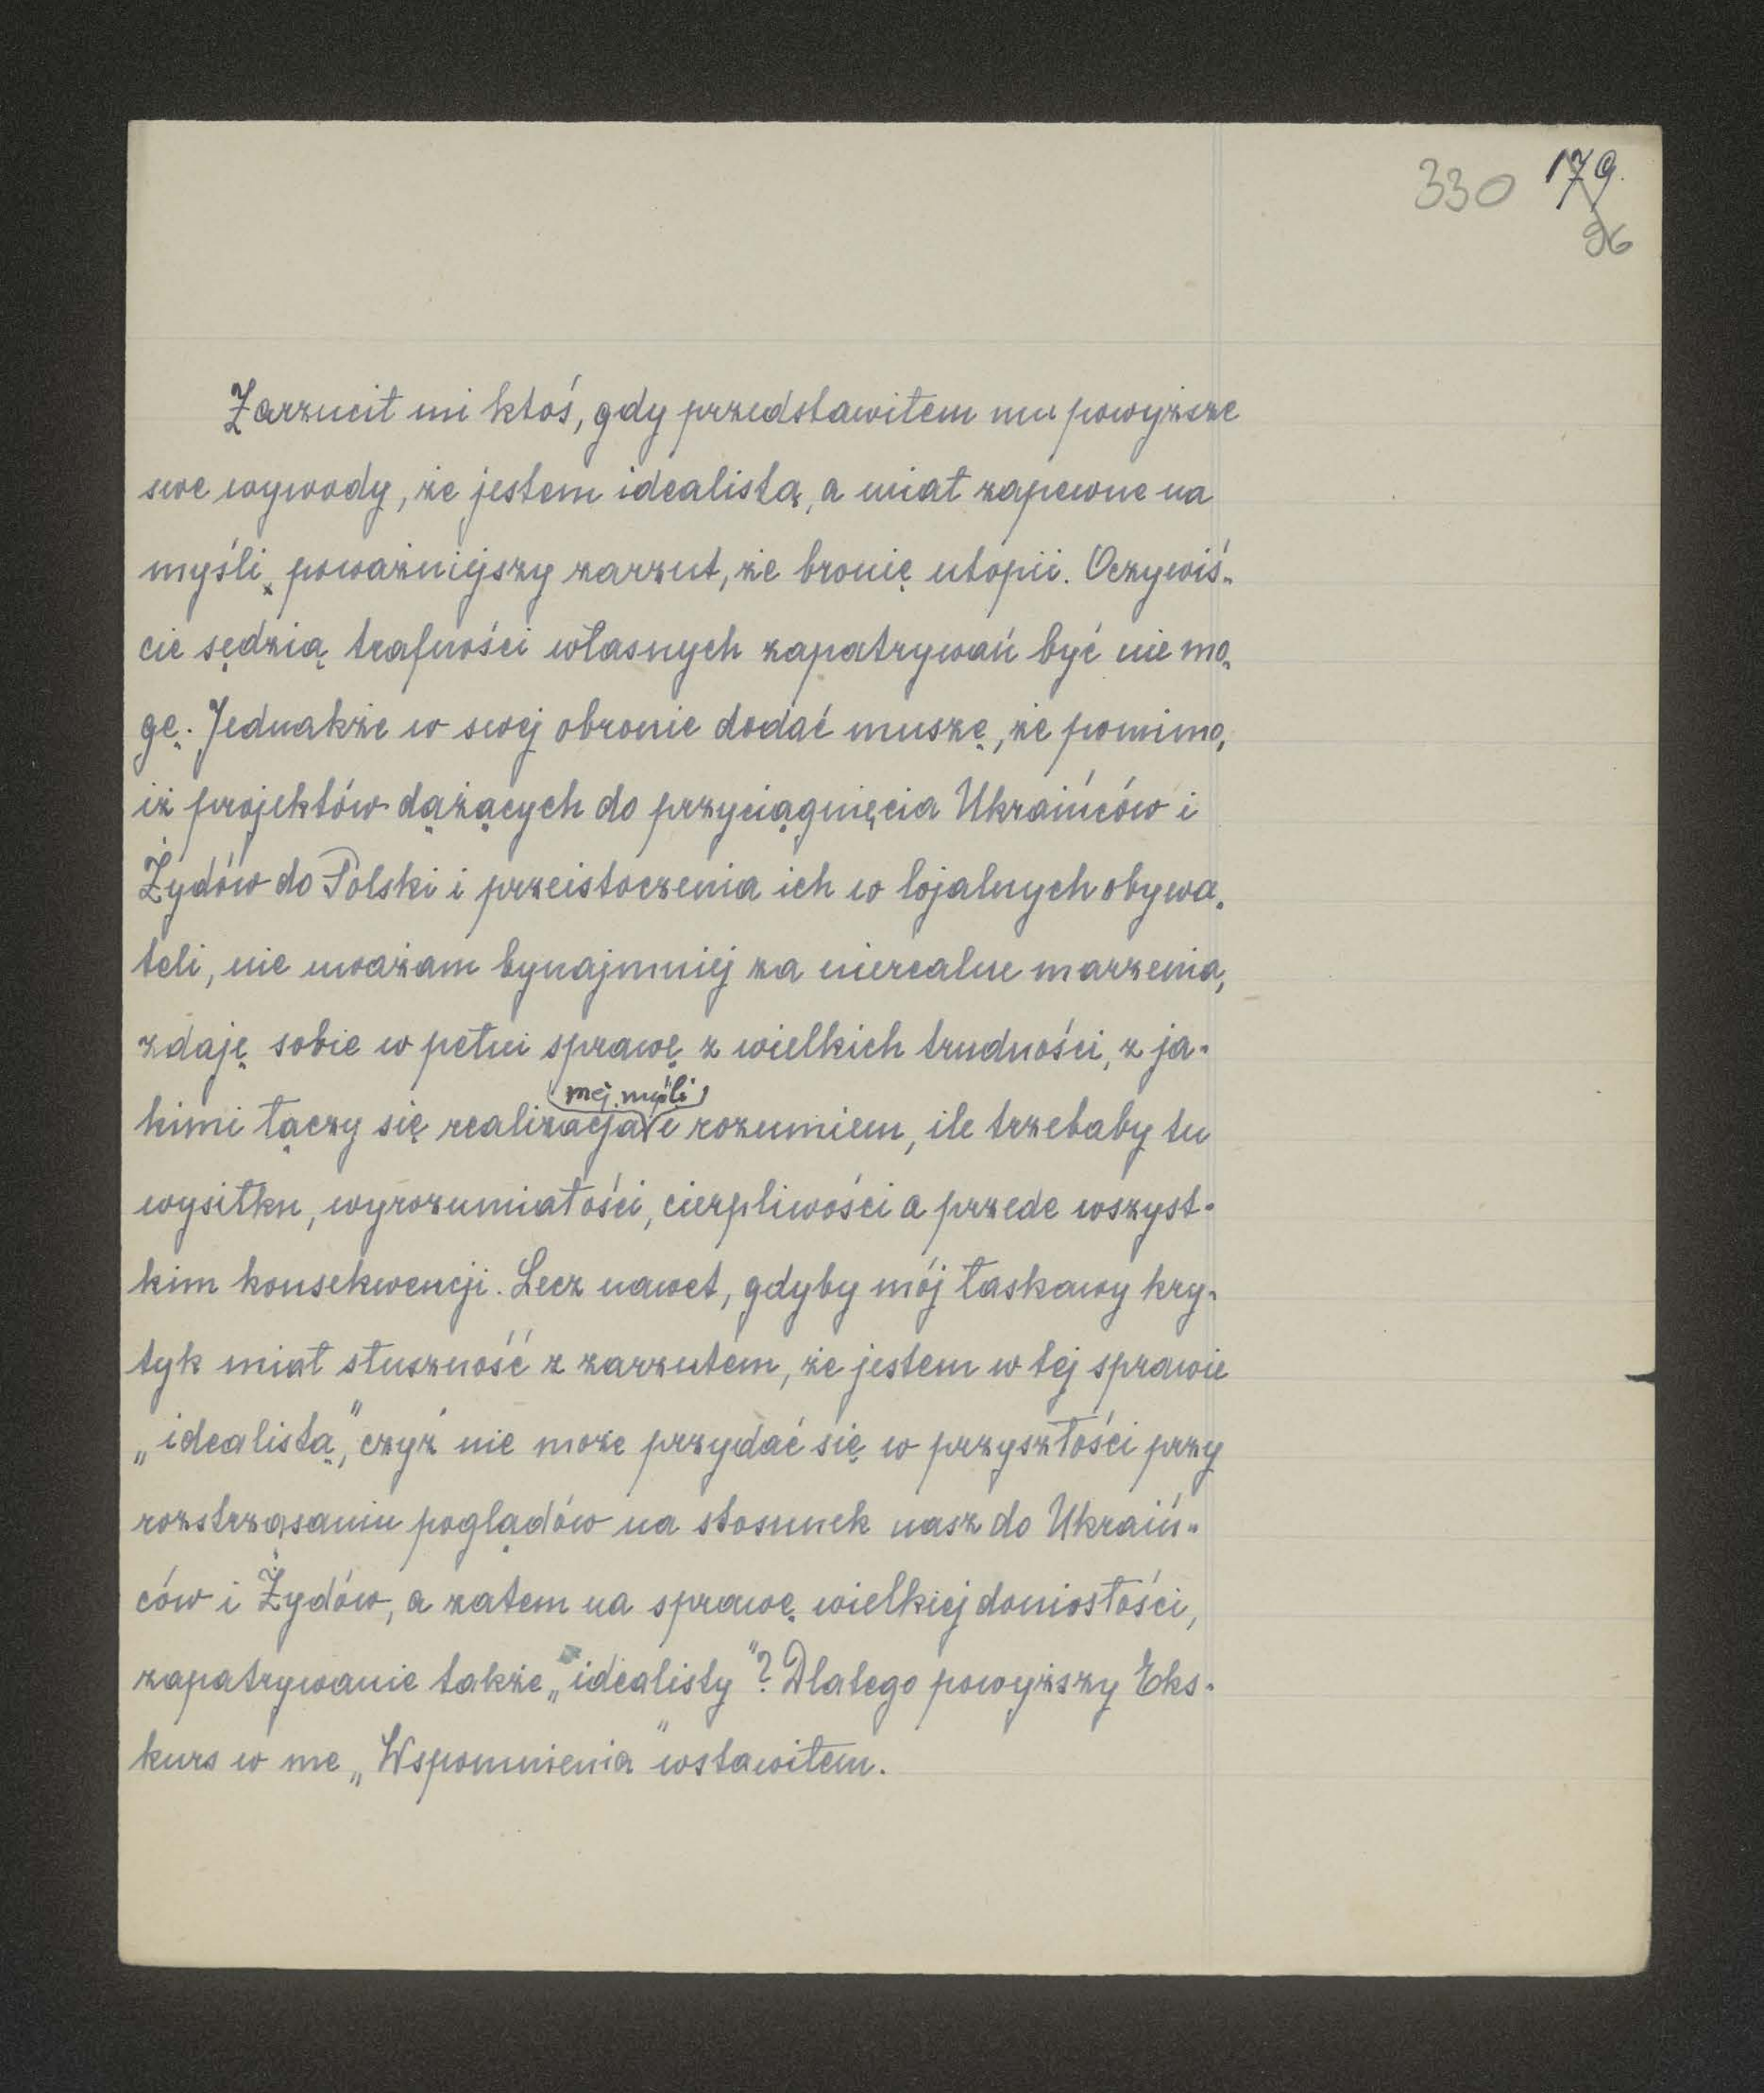 330 179.
96
Zarzucił mi ktoś, gdy przedstawiłem mu powyższe
swe wywody, że jestem idealistą, a miał zapewne na
myśli poważniejszy zarzut, że bronię utopii. Oczywiś-
cie sędzią trafności własnych zapatrywań być nie mo-
gę. Jednakże w swej obronie dodać muszę, że pomimo,
iż projektów dążących do przyciągnięcia Ukraińców i
Żydów do Polski i przeistoczenia ich w lojalnych obywa-
teli, nie uważam bynajmniej za nierealne marzenia,
zdaję sobie w pełni sprawę z wielkich trudności, z ja-
mej myśli
kimi łączy się realizacja i rozumiem, ile trzebaby tu
wysiłku, wyrozumiałości, cierpliwości a przede wszyst-
kim konsekwencji. Lecz nawet, gdyby mój łaskawy kry-
tyk miał słuszność z zarzutem, że jestem w tej sprawie
„idealistą", czyż nie może przydać się w przyszłości przy
rozstrząsaniu poglądów na stosunek nasz do Ukraiń-
ców i Żydów, a zatem na sprawę wielkiej doniosłości,
zapatrywanie także „idealisty"? Dlatego powyższy Eks-
kurs w me „Wspomnienia" wstawiłem.